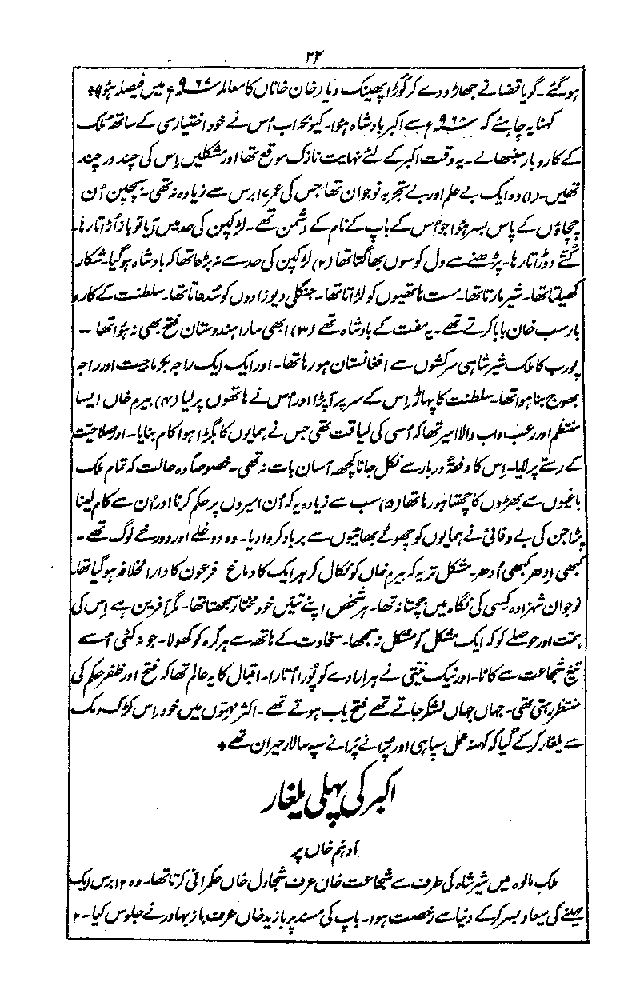 ۲۲
ہو گئے۔ گریا قضا نے جھاڑو دے کر کوڑا پھینک دیا۔ خان خاناں کا معاملہ سنہ ۹۶۷ھ میں فیصلہ ہؤا۔
کہنا چاہئے کہ سنہ ۹۶۷ھ سے اکبر بادشاہ ہؤا۔ کیونکہ اب اُس نے خود اختیاری کے ساتھ ملک
کے کاروبار سنبھالے۔ یہ وقت اکبر کے لئے نہایت نازک موقع تھا اور مشکلیں اِس کی چند در چند
تھیں۔ (۱) وہ ایک بے علم اور بے تجربہ نوجوان تھا جس کی عمر ۱۷ برس سے زیادہ نہ تھی۔ بچپن اُن
چچاؤں کے پاس بسر ہؤا جو اُس کے باپ کے نام کے دشمن تھے۔ لڑکپن کی حد میں آیا تو باز اُڑاتا رہا
کُتّے دوڑاتا رہا۔ پڑھنے سے دل کوسوں بھاگتا تھا (۲) لڑکپن کی حد سے نہ بڑھا تھا کہ بادشاہ ہو گیا۔ شکار
کھیلتا تھا۔ شیر مارتا تھا۔ مست ہاتھیوں کو لڑاتا تھا۔ جنگلی دیوزادوں کو سُدھاتا تھا۔ سلطنت کے کارو
بار سب خان بابا کرتے تھے۔ یہ مفت کے بادشاہ تھے (۳) ابھی سارا ہندوستان فتح بھی نہ ہؤا تھا۔
پورب کا ملک شیر شاہی سرکشوں سے افغانستان ہو رہا تھا۔ اور ایک ایک راجہ بکرماجیت اور راجہ
بھوج بنا ہوا تھا۔ سلطنت کا پہاڑ اِس کے سر پر آپڑا اور اُس نے ہاتھوں پر لیا (۴) بیرم خاں ایسا
منتظم اور رعب داب والا امیر تھا کہ اُسی کی لیاقت تھی جس نے ہمایوں کا بگڑا ہوا کام بنایا۔ اور صلاحیت
کے رستے پر لایا۔ اس کا دفعۃً دربار سے نکل جانا کچھ آسان بات نہ تھی۔ خصوصاً وہ حالت کہ تمام ملک
باغیوں سے بھڑوں کا چھتا ہو رہا تھا (۵) سب سے زیادہ یہ کہ اُن امیروں پر حکم کرنا اور اُن سے کام لینا
پڑا جن کی بے وفائی نے ہمایوں کو چھوٹے بھائیوں سے برباد کروا دیا۔ وہ دوغلے اور دورُخے لوگ تھے۔
کبھی اِدھر کبھی اُدھر۔ مشکل تر یہ کہ بیرم خاں کو نکال کر ہر ایک کا دماغ فرعون کا دارالخلافہ ہو گیا تھا
نوجوان شہزادہ کسی کی نگاہ میں جچتا نہ تھا۔ ہر شخص اپنے تئیں خود مختار سمجھتا تھا۔ مگر آفرین ہے اِس کی
ہمت اور حوصلے کو کہ ایک مشکل کو مشکل نہ سمجھا۔ سخاوت کے ہاتھ سے ہر گرہ کو کھولا۔ جو نہ کُھلی اُسے
تیغ شجاعت سے کاٹا۔ اور نیک نیتی نے ہر ارادے کو پُورا اُتارا۔ اقبال کا یہ عالم تھا کہ فتح اور ظفر حکم کی
منتظر رہتی تھی۔ جہاں جہاں لشکر جاتے تھے فتح یاب ہوتے تھے۔ اکثر مہموں میں خود اِس کڑک دمک
سے یلغار کرکے گیا کہ کہنہ عمل سپاہی اور پُرانے پُرانے سپہ سالار حیران تھے۔
اکبر کی پہلی یلغار
ادہم خاں پر
ملک مالوہ میں شیر شاہ کی طرف سے شجاعت خان عرف شجاول خاں حکمرانی کرتا تھا۔ وہ ۱۲ برس ایک
مہینے کی میعاد بسر کرکے دنیا سے رخصت ہوا۔ باپ کی مسند پر بایزید خاں عرف باز بہادر نے جلوس کیا۔ ۲